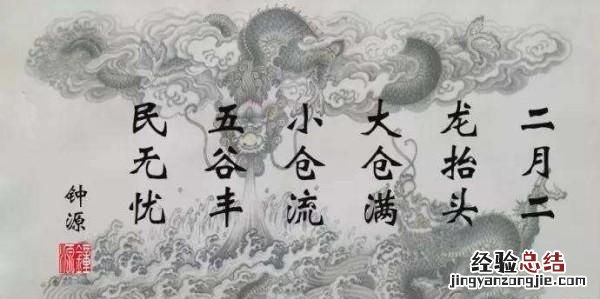 二月二
龙抬头
大仓满
小仓流
五谷丰
民无忧
钟源
鐘源
经验总结
jingyanzongjie.com